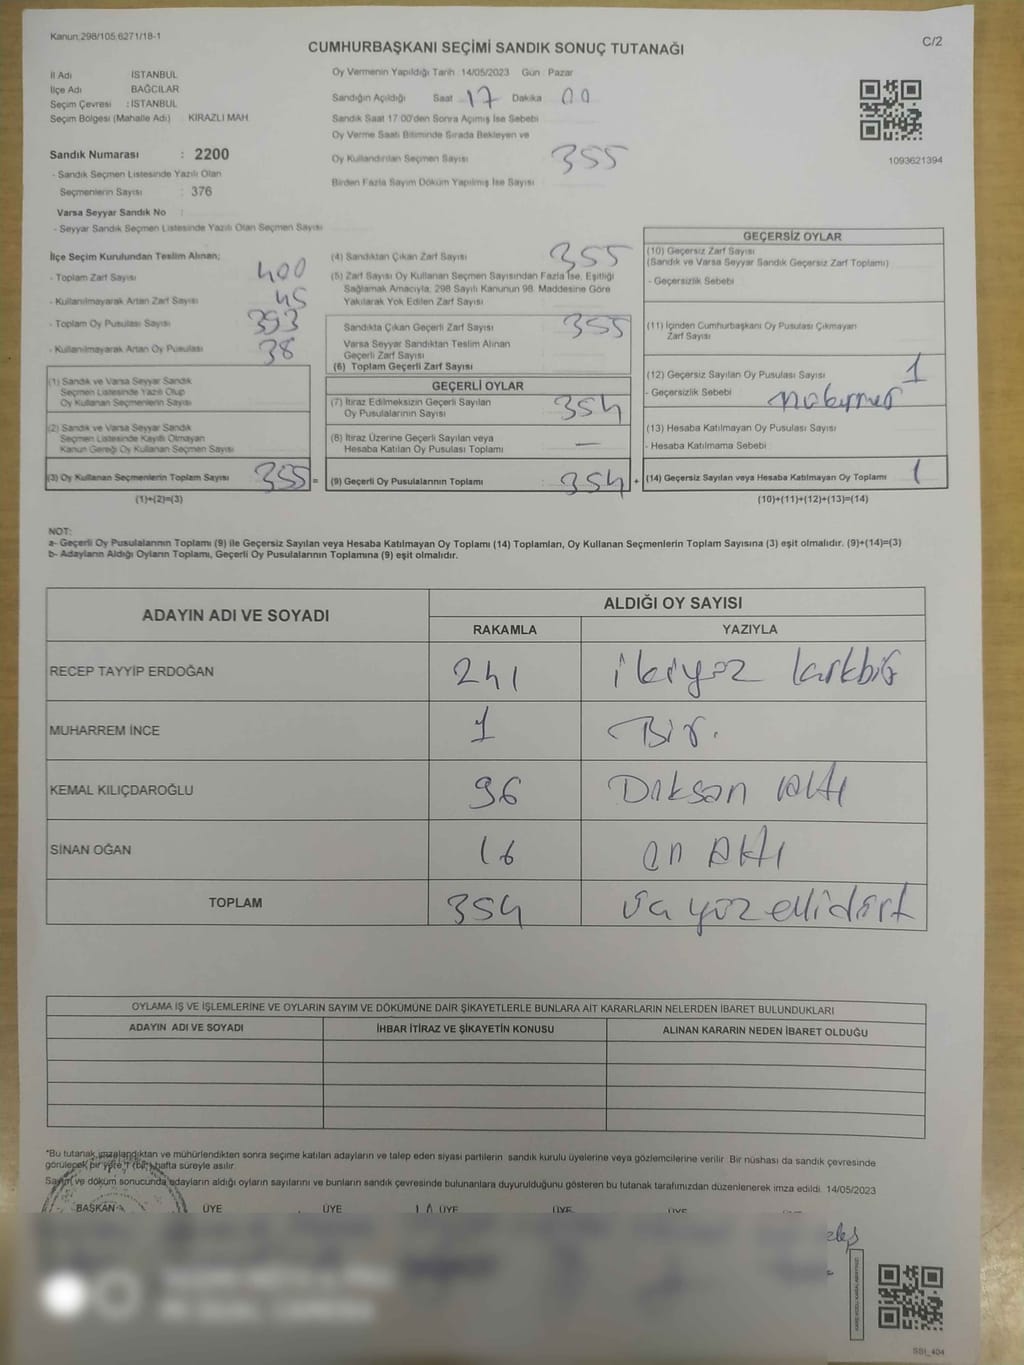 Kanun.298/105.6271/18-1
CUMHURBAŞKANI SEÇİMİ SANDIK SONUÇ TUTANAĞI
C/2
İl Adı İSTANBUL
İlçe Adı BAĞCILAR
Seçim Çevresi : İSTANBUL
Seçim Bölgesi (Mahalle Adı) KİRAZLI MAH.
Oy Vermenin Yapıldığı Tarih :14/05/2023 Gün : Pazar
Sandığın Açıldığı Saat 17 Dakika 00
Sandık Saat 17:00'den Sonra Açılmış İse Sebebi
Oy Verme Saati Bitiminde Sırada Bekleyen ve
Oy Kullandırılan Seçmen Sayısı 355
Birden Fazla Sayım Döküm Yapılmış İse Sayısı
1093621394
Sandık Numarası : 2200
- Sandık Seçmen Listesinde Yazılı Olan
Seçmenlerin Sayısı : 376
Varsa Seyyar Sandık No :
- Seyyar Sandık Seçmen Listesinde Yazılı Olan Seçmen Sayısı
İlçe Seçim Kurulundan Teslim Alınan;
- Toplam Zarf Sayısı 400
- Kullanılmayarak Artan Zarf Sayısı 45
- Toplam Oy Pusulası Sayısı 393
- Kullanılmayarak Artan Oy Pusulası 38
(1) Sandık ve Varsa Seyyar Sandık
Seçmen Listesinde Yazılı Olup
Oy Kullanan Seçmenlerin Sayısı
(2) Sandık ve Varsa Seyyar Sandık
Seçmen Listesinde Kayıtlı Olmayan
Kanun Gereği Oy Kullanan Seçmen Sayısı
(3) Oy Kullanan Seçmenlerin Toplam Sayısı 355 =
(1)+(2)=(3)
(4) Sandıktan Çıkan Zarf Sayısı 355
(5) Zarf Sayısı Oy Kullanan Seçmen Sayısından Fazla İse, Eşitliği
Sağlamak Amacıyla, 298 Sayılı Kanunun 98. Maddesine Göre
Yakılarak Yok Edilen Zarf Sayısı
Sandıkta Çıkan Geçerli Zarf Sayısı 355
Varsa Seyyar Sandıktan Teslim Alınan
Geçerli Zarf Sayısı
(6) Toplam Geçerli Zarf Sayısı
GEÇERLİ OYLAR
(7) İtiraz Edilmeksizin Geçerli Sayılan
Oy Pusulalarının Sayısı 354
(8) İtiraz Üzerine Geçerli Sayılan veya
Hesaba Katılan Oy Pusulası Toplamı —
(9) Geçerli Oy Pusulalarının Toplamı : 354 +
GEÇERSİZ OYLAR
(10) Geçersiz Zarf Sayısı
(Sandık ve Varsa Seyyar Sandık Geçersiz Zarf Toplamı)
- Geçersizlik Sebebi
(11) İçinden Cumhurbaşkanı Oy Pusulası Çıkmayan
Zarf Sayısı
(12) Geçersiz Sayılan Oy Pusulası Sayısı 1
- Geçersizlik Sebebi
(13) Hesaba Katılmayan Oy Pusulası Sayısı
- Hesaba Katılmama Sebebi
(14) Geçersiz Sayılan veya Hesaba Katılmayan Oy Toplamı 1
(10)+(11)+(12)+(13)=(14)
NOT:
a- Geçerli Oy Pusulalarının Toplamı (9) ile Geçersiz Sayılan veya Hesaba Katılmayan Oy Toplamı (14) Toplamları, Oy Kullanan Seçmenlerin Toplam Sayısına (3) eşit olmalıdır. (9)+(14)=(3)
b- Adayların Aldığı Oyların Toplamı, Geçerli Oy Pusulalarının Toplamına (9) eşit olmalıdır.
ADAYIN ADI VE SOYADI
ALDIĞI OY SAYISI
RAKAMLA YAZIYLA
RECEP TAYYİP ERDOĞAN 241 ikiyüz kırkbir
MUHARREM İNCE 1 Bir.
KEMAL KILIÇDAROĞLU 96 Doksan Altı
SİNAN OĞAN 16 on Altı
TOPLAM 354 üç yüz ellidört
OYLAMA İŞ VE İŞLEMLERİNE VE OYLARIN SAYIM VE DÖKÜMÜNE DAİR ŞİKAYETLERLE BUNLARA AİT KARARLARIN NELERDEN İBARET BULUNDUKLARI
ADAYIN ADI VE SOYADI İHBAR İTİRAZ VE ŞİKAYETİN KONUSU ALINAN KARARIN NEDEN İBARET OLDUĞU
*Bu tutanak imzalandıktan ve mühürlendikten sonra seçime katılan adayların ve talep eden siyasi partilerin sandık kurulu üyelerine veya gözlemcilerine verilir. Bir nüshası da sandık çevresinde
görülecek bir yere 1 (bir) hafta süreyle asılır.
Sayım ve döküm sonucunda adayların aldığı oyların sayılarını ve bunların sandık çevresinde bulunanlara duyurulduğunu gösteren bu tutanak tarafımızdan düzenlenerek imza edildi. 14/05/2023
BAŞKAN ÜYE ÜYE ÜYE ÜYE ÜYE
SBI_404